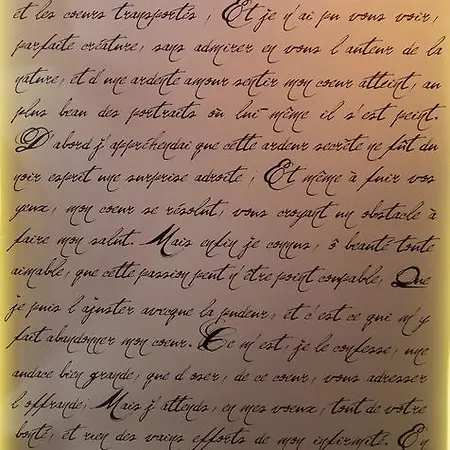 et les cœurs transportés ; Et je n'ai pu vous voir,
parfaite créature, sans admirer en vous l'auteur de la
nature, et d'une ardente amour sentir mon cœur atteint, au
plus beau des portraits où lui-même il s'est peint.
D'abord j'appréhendai que cette ardeur secrète ne fût du
noir esprit une surprise adroite ; Et même à fuir vos
yeux, mon cœur se résolut, vous croyant un obstacle à
faire mon salut. Mais enfin je connus, ô beauté toute
aimable, que cette passion peut n'être point coupable, Que
je puis l'ajuster avecque la pudeur, et c'est ce qui m'y
fait abandonner mon cœur. Ce m'est, je le confesse, une
audace bien grande, que d'oser, de ce cœur, vous adresser
l'offrande; Mais j'attends, en mes vœux, tout de votre
bonté, et rien des vains efforts de mon infirmité. En